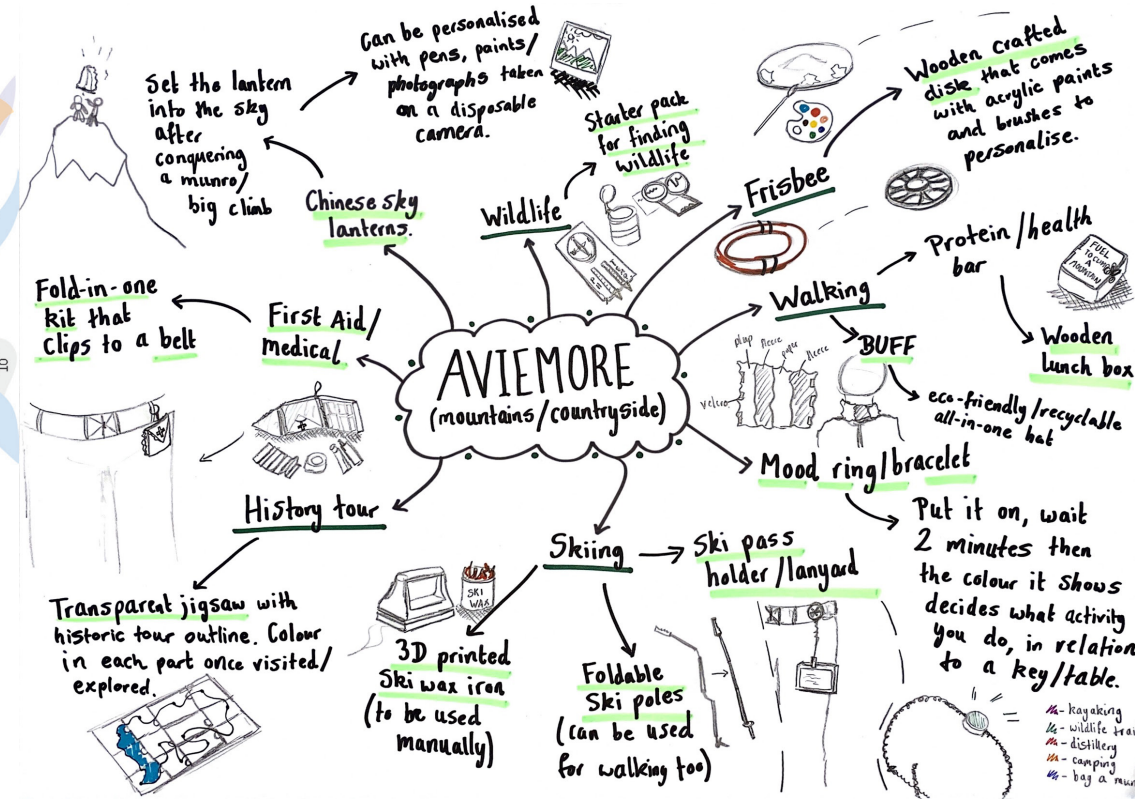 AVIEMORE
(mountains/countryside)
Chinese sky
lanterns.
Set the lantern
into the sky
after
conquering
a munro/
big climb
Can be personalised
with pens, paints/
photographs taken
on a disposable
camera.
Wildlife
Starter pack
for finding
wildlife
Frisbee
Wooden crafted
disk that comes
with acrylic paints
and brushes to
personalise.
Walking
Protein/health
bar
FUEL
TO CLIMB
A
MOUNTAIN
Wooden
lunch box
BUFF
eco-friendly/recyclable
all-in-one hat
fleece
fleece
velcro
Mood ring/bracelet
Put it on, wait
2 minutes then
the colour it shows
decides what activity
you do, in relation
to a key/table.
- kayaking
- wildlife trai
- distillery
- camping
- bag a mun
Skiing
Ski pass
holder/lanyard
Foldable
Ski poles
(can be used
for walking too)
3D printed
Ski wax iron
(to be used
manually)
SKI
WAX
History tour
Transparent jigsaw with
historic tour outline. Colour
in each part once visited/
explored.
First Aid/
Medical
Fold-in-one
kit that
Clips to a belt
10